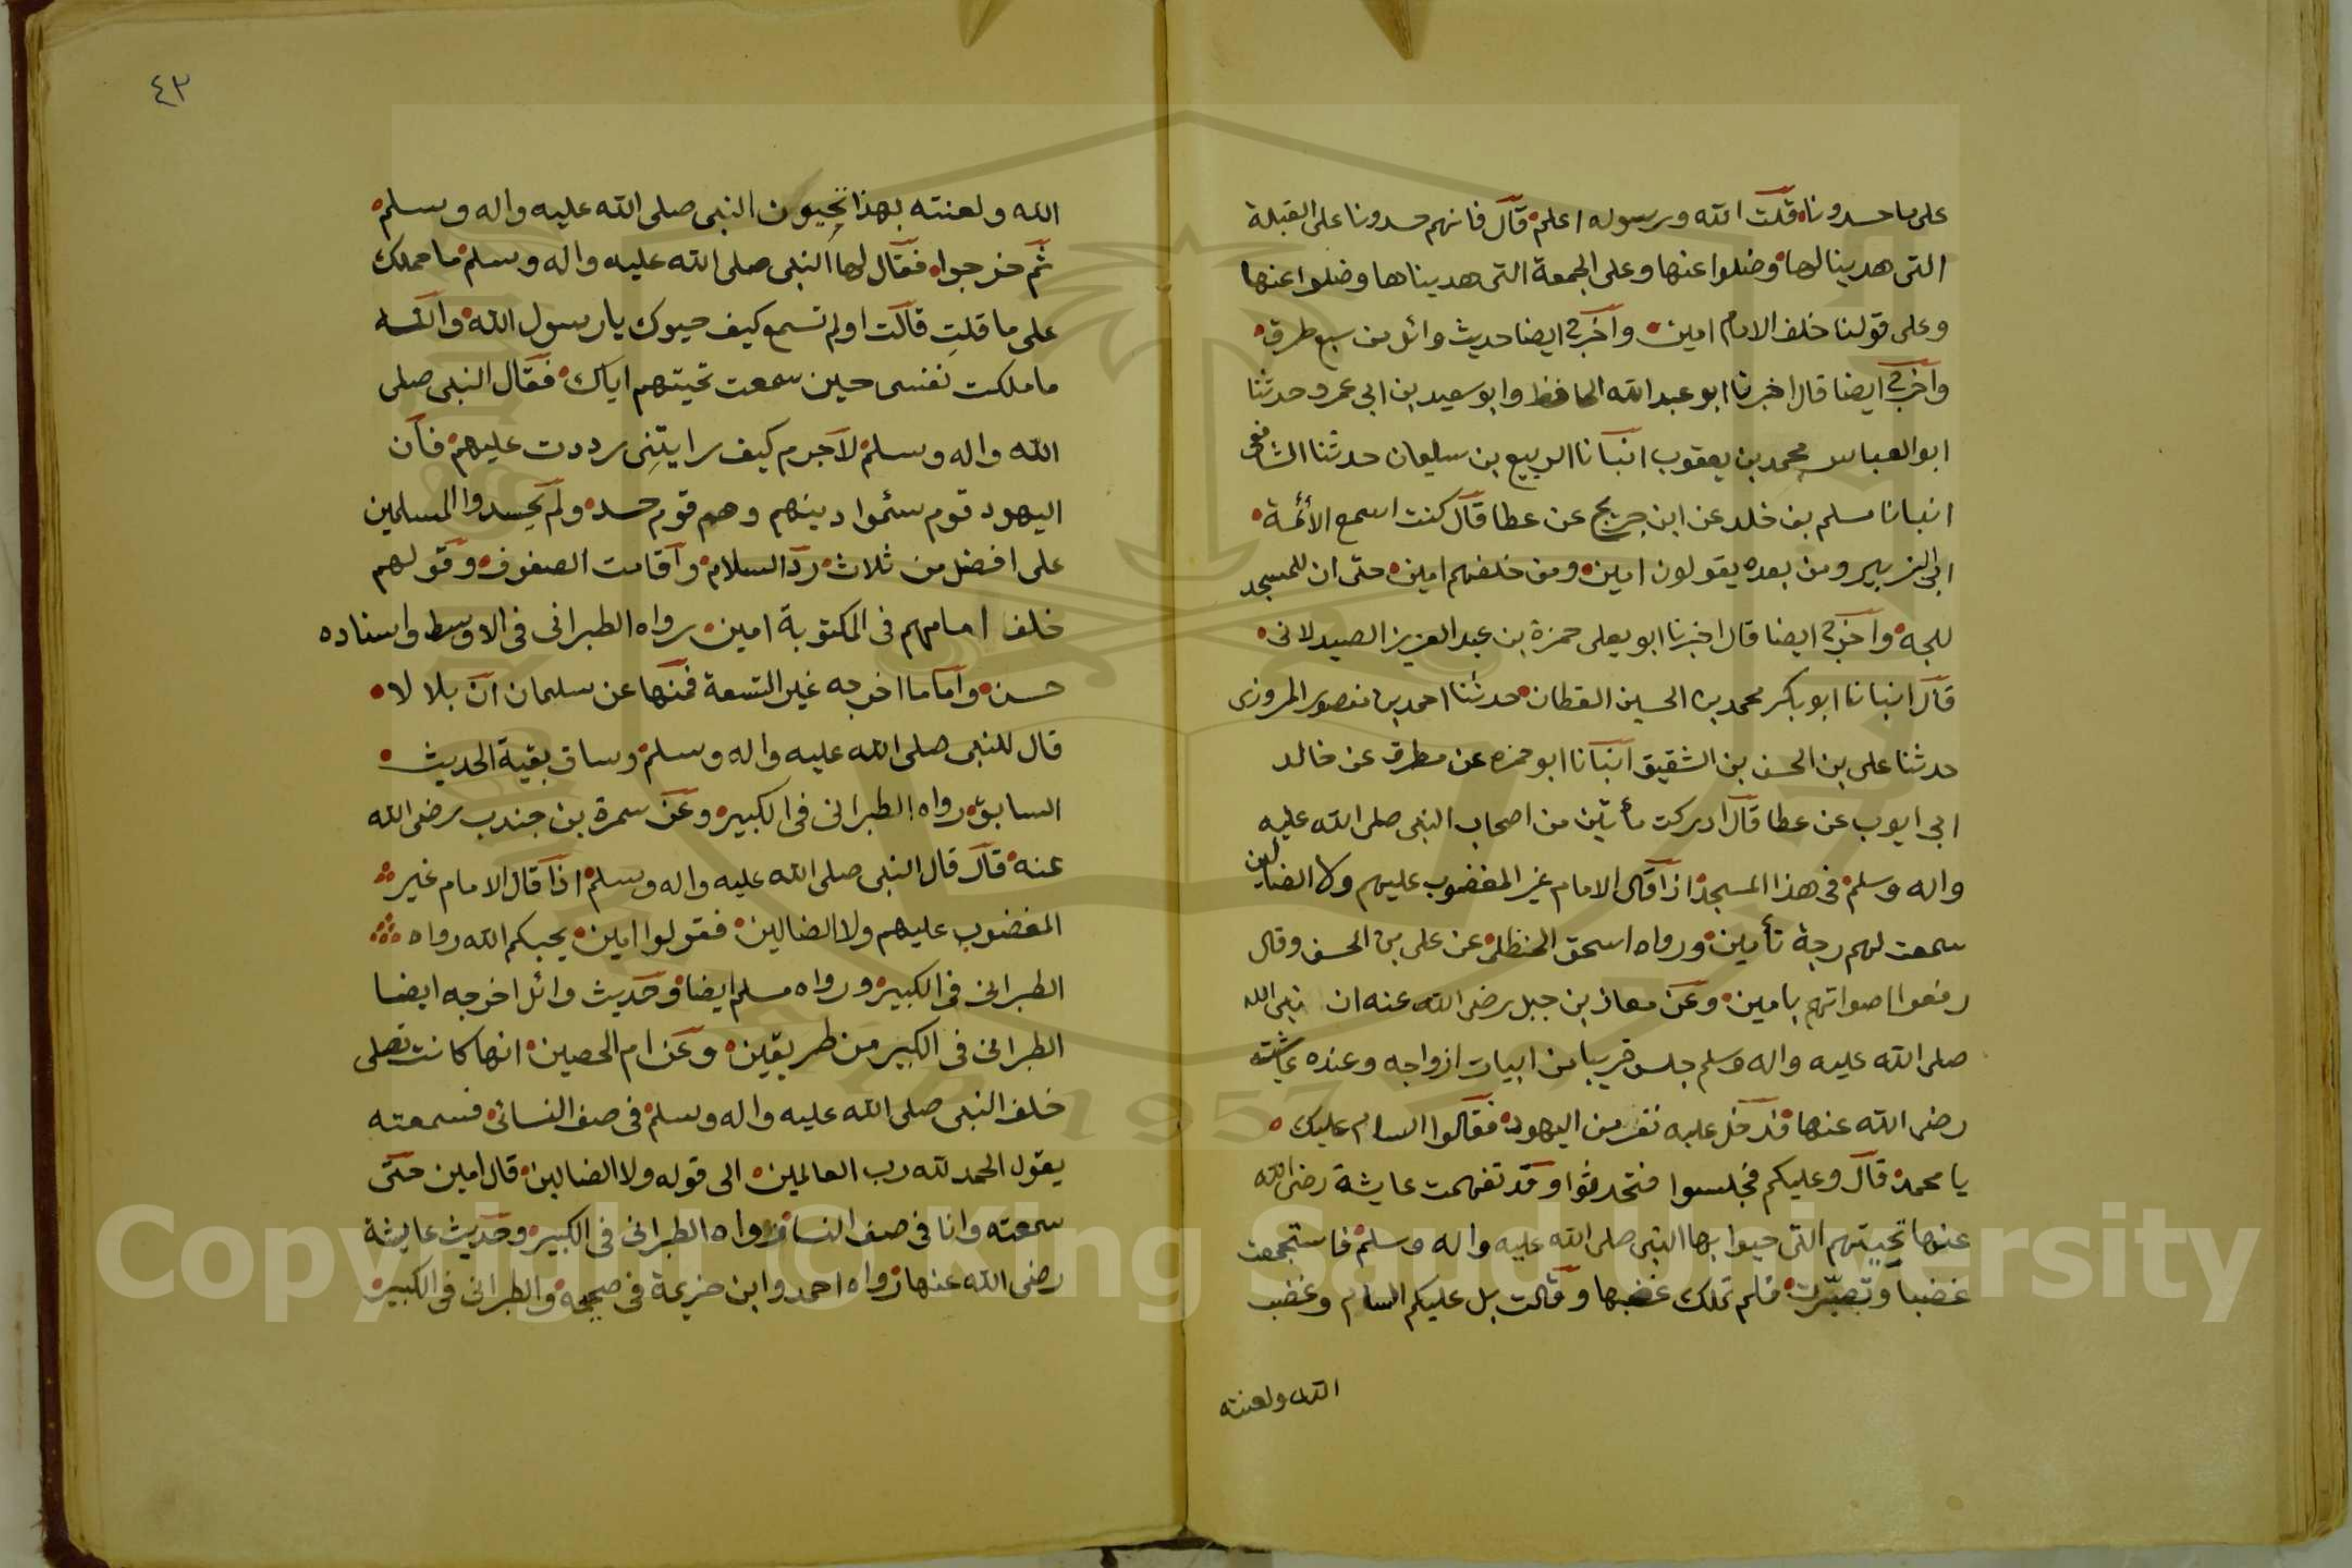 على ما حسدونا قلت الله ورسوله اعلم قال فانهم حسدونا على القبلة
التى هدينا لها وضلوا عنها وعلى الجمعة التى هديناها وضلوا عنها
وعلى قولنا خلف الامام امين واخرج ايضا حديث وائل من سبع طرق
واخرج ايضا قال اخبرنا ابو عبد الله الحافظ وابو سعيد بن ابى عمرو حدثنا
ابو العباس محمد بن يعقوب انبانا الربيع بن سليمان حدثنا الشافعى
انبانا مسلم بن خلد عن ابن جريج عن عطا قال كنت اسمع الأئمة
ابى الزبير ومن بعده يقولون امين ومن خلفهم امين حتى ان للمسجد
للجة واخرج ايضا قال اخبرنا ابو يعلى حمزة بن عبد العزيز الصيدلانى
قال انبانا ابو بكر محمد بن الحسين القطان حدثنا احمد بن منصور المروزى
حدثنا على بن الحسن بن الشقيق انبانا ابو حمزه عن مطرف عن خالد
ابى ايوب عن عطا قال ادركت مأتين من اصحاب النبى صلى الله عليه
واله وسلم فى هذا المسجد اذا قال الامام غير المغضوب عليهم ولا الضالين
سمعت لهم رجة تأمين ورواه اسحق الحنظلى عن على بن الحسن وقال
رفعوا اصواتهم بامين وعن معاذ بن جبل رضى الله عنه ان نبى الله
صلى الله عليه واله وسلم جلس قريبا من ابيات ازواجه وعنده عائشة
رضى الله عنها فدخل عليه نفر من اليهود فقالوا السام عليك
يا محمد قال وعليكم فجلسوا فتحدثوا وقد تفهمت عايشة رضى الله
عنها تحيتهم التى حيوا بها النبى صلى الله عليه واله وسلم فاستجمعت
غضبا وتصبّرت فلم تملك غضبها وقالت بل عليكم السام وغضب
الله ولعنته
٤٣
الله ولعنته بهذا تحيون النبى صلى الله عليه واله وسلم
ثم خرجوا فقال لها النبى صلى الله عليه واله وسلم ما حملك
على ما قلتِ قالت اولم تسمع كيف حيوك يا رسول الله والله
ما ملكت نفسى حين سمعت تحيتهم اياك فقال النبى صلى
الله واله وسلم لاجرم كيف رايتِنى رددت عليهم فان
اليهود قوم سئموا دينهم وهم قوم حسد ولم يحسدوا المسلمين
على افضل من ثلاث رد السلام واقامت الصفوف وقولهم
خلف امامهم فى المكتوبة امين رواه الطبرانى فى الاوسط واسناده
حسن واما ما اخرجه غير التسعة فمنها عن سليمان ان بلالا
قال للنبى صلى الله عليه واله وسلم وساق بقية الحديث
السابق رواه الطبرانى فى الكبير وعن سمرة بن جندب رضى الله
عنه قال قال النبى صلى الله عليه واله وسلم اذا قال الامام غير
المغضوب عليهم ولا الضالين فقولوا امين يحبكم الله رواه
الطبرانى فى الكبير ورواه مسلم ايضا وحديث وائل اخرجه ايضا
الطبرانى فى الكبير من طريقين وعن ام الحصين انها كانت تصلى
خلف النبى صلى الله عليه واله وسلم فى صف النسائ فسمعته
يقول الحمد لله رب العالمين الى قوله ولا الضالين قال امين حتى
سمعته وانا فى صف النسائ رواه الطبرانى فى الكبير وحديث عايشة
رضى الله عنها رواه احمد وابن خزيمة فى صحيحه والطبرانى فى الكبير
Copyright © King Saud University
1957